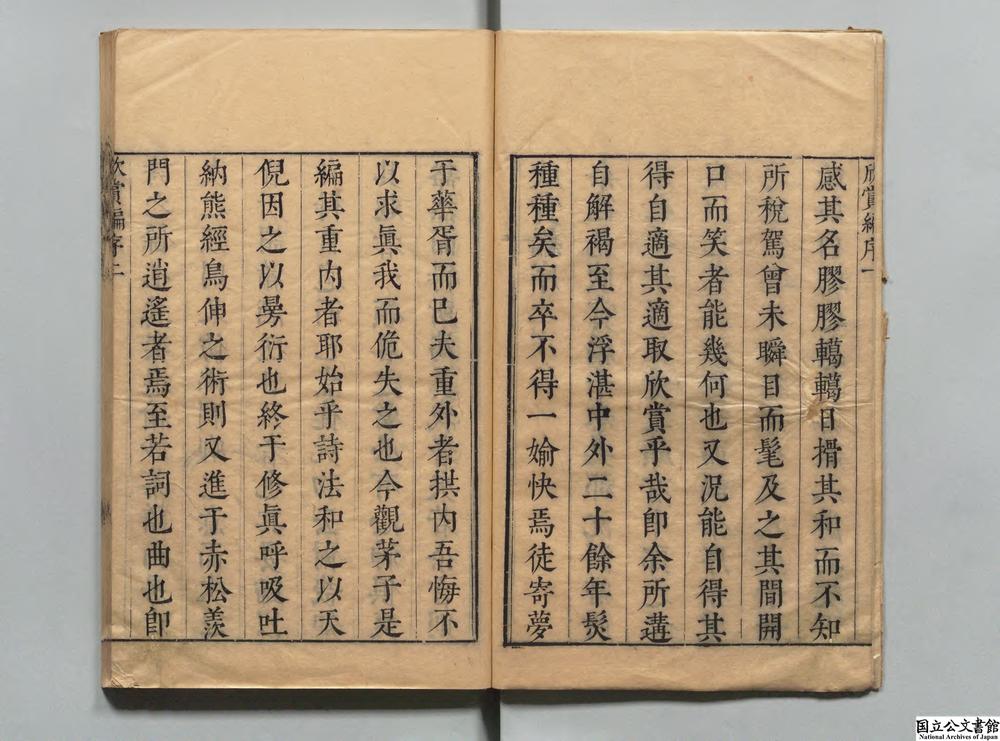 欣賞編序一
感其名膠膠轕轕日搰其和而不知
所稅駕曾未瞬目而髦及之其間開
口而笑者能幾何也又況能自得其
得自適其適取欣賞乎哉卽余所遘
自解褐至今浮湛中外二十餘年髮
種種矣而卒不得一媮快焉徒寄夢
于華胥而已夫重外者拱內吾悔不
以求眞我而佹失之也今觀茅子是
編其重內者耶始乎詩法和之以天
倪因之以曼衍也終于修眞呼吸吐
納熊經鳥伸之術則又進于赤松羨
門之所逍遙者焉至若詞也曲也卽
欣賞編序二
国立公文書館
National Archives of Japan